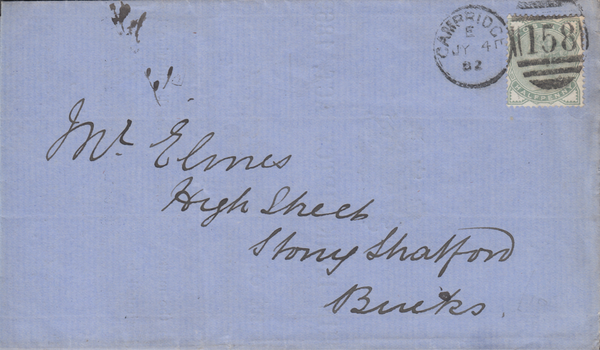 CAMBRIDGE
E
JY 4
82
158
HALFPENNY
Mr. Elmes
High Street
Stony Stratford
Bucks.